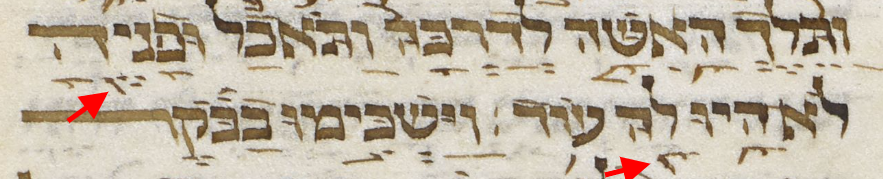 ותלך האשה לדרכה ותאכל ופניה
לא היו לה עוד : וישכימו בבקר